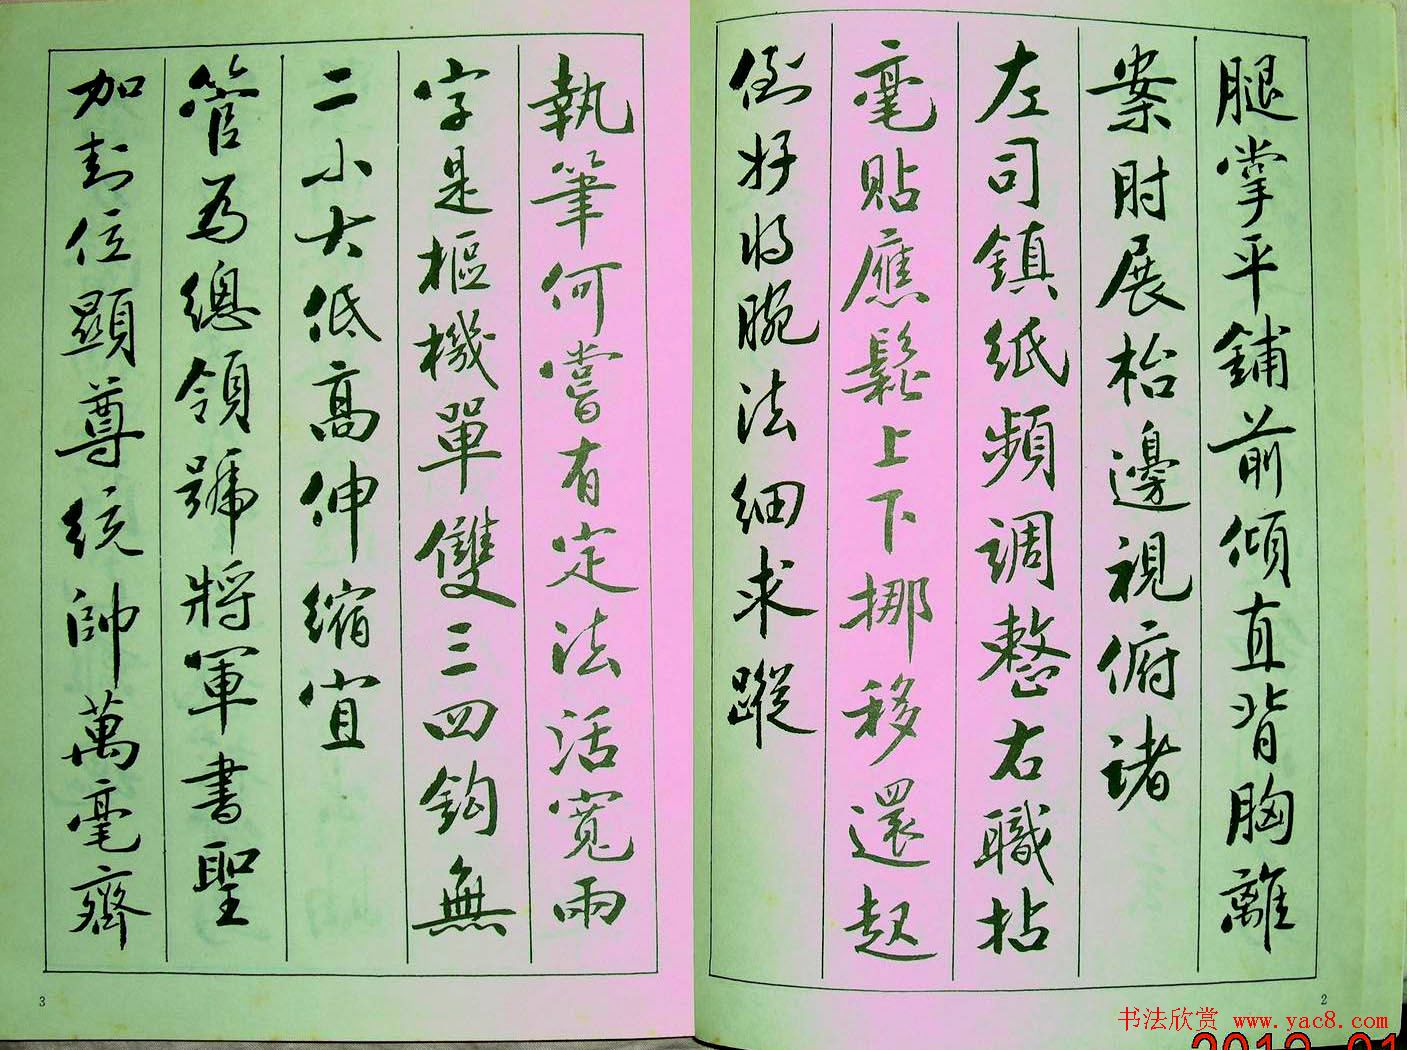 腿掌平鋪前傾直背胸離
案肘展枱邊視俯諸
左司鎮紙頻調整右職拈
毫貼應鬆上下挪移還起
倒好將腕法細求蹤
2
執筆何嘗有定法活寬兩
字是樞機單雙三四鈎無
二小大低高伸縮宜
管為總領號將軍書聖
加封位顯尊統帥萬毫齊
3
书法欣赏 www.yac8.com
2012 01